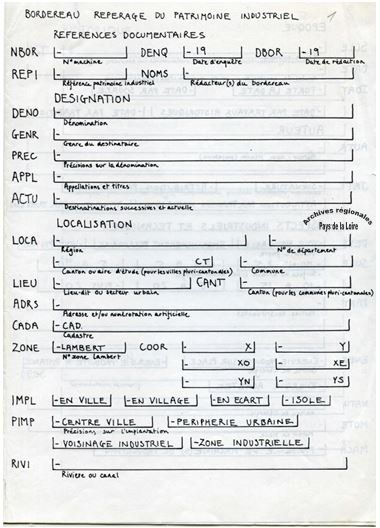 BORDEREAU REPERAGE DU PATRIMOINE INDUSTRIEL 1
REFERENCES DOCUMENTAIRES
NBOR - DENQ -19 DBOR -19
N° machine Date d'enquête Date de rédaction
REPI - NOMS -
Référence patrimoine industriel Rédacteur(s) du bordereau
DESIGNATION
DENO -
Dénomination
GENR -
Genre du destinataire
PREC -
Précisions sur la dénomination
APPL -
Appellations et titres
ACTU -
Destinations successives et actuelle
Archives régionales
Pays de la Loire
LOCALISATION
LOCA - -
Région N° de département
- CT -
Canton ou aire d'étude (pour les villes pluri-cantonales) Commune
LIEU - CANT -
Lieu-dit ou secteur urbain Canton (pour les communes pluri-cantonales)
ADRS -
Adresse et/ou numérotation artificielle
CADA - CAD.
Cadastre
ZONE -LAMBERT COOR - X - Y
N° zone Lambert
- XO - XE
- YN - YS
IMPL -EN VILLE -EN VILLAGE -EN ECART -ISOLE
PIMP -CENTRE VILLE -PERIPHERIE URBAINE
Précisions sur l'implantation
- VOISINAGE INDUSTRIEL -ZONE INDUSTRIELLE
RIVI -
Rivière ou canal